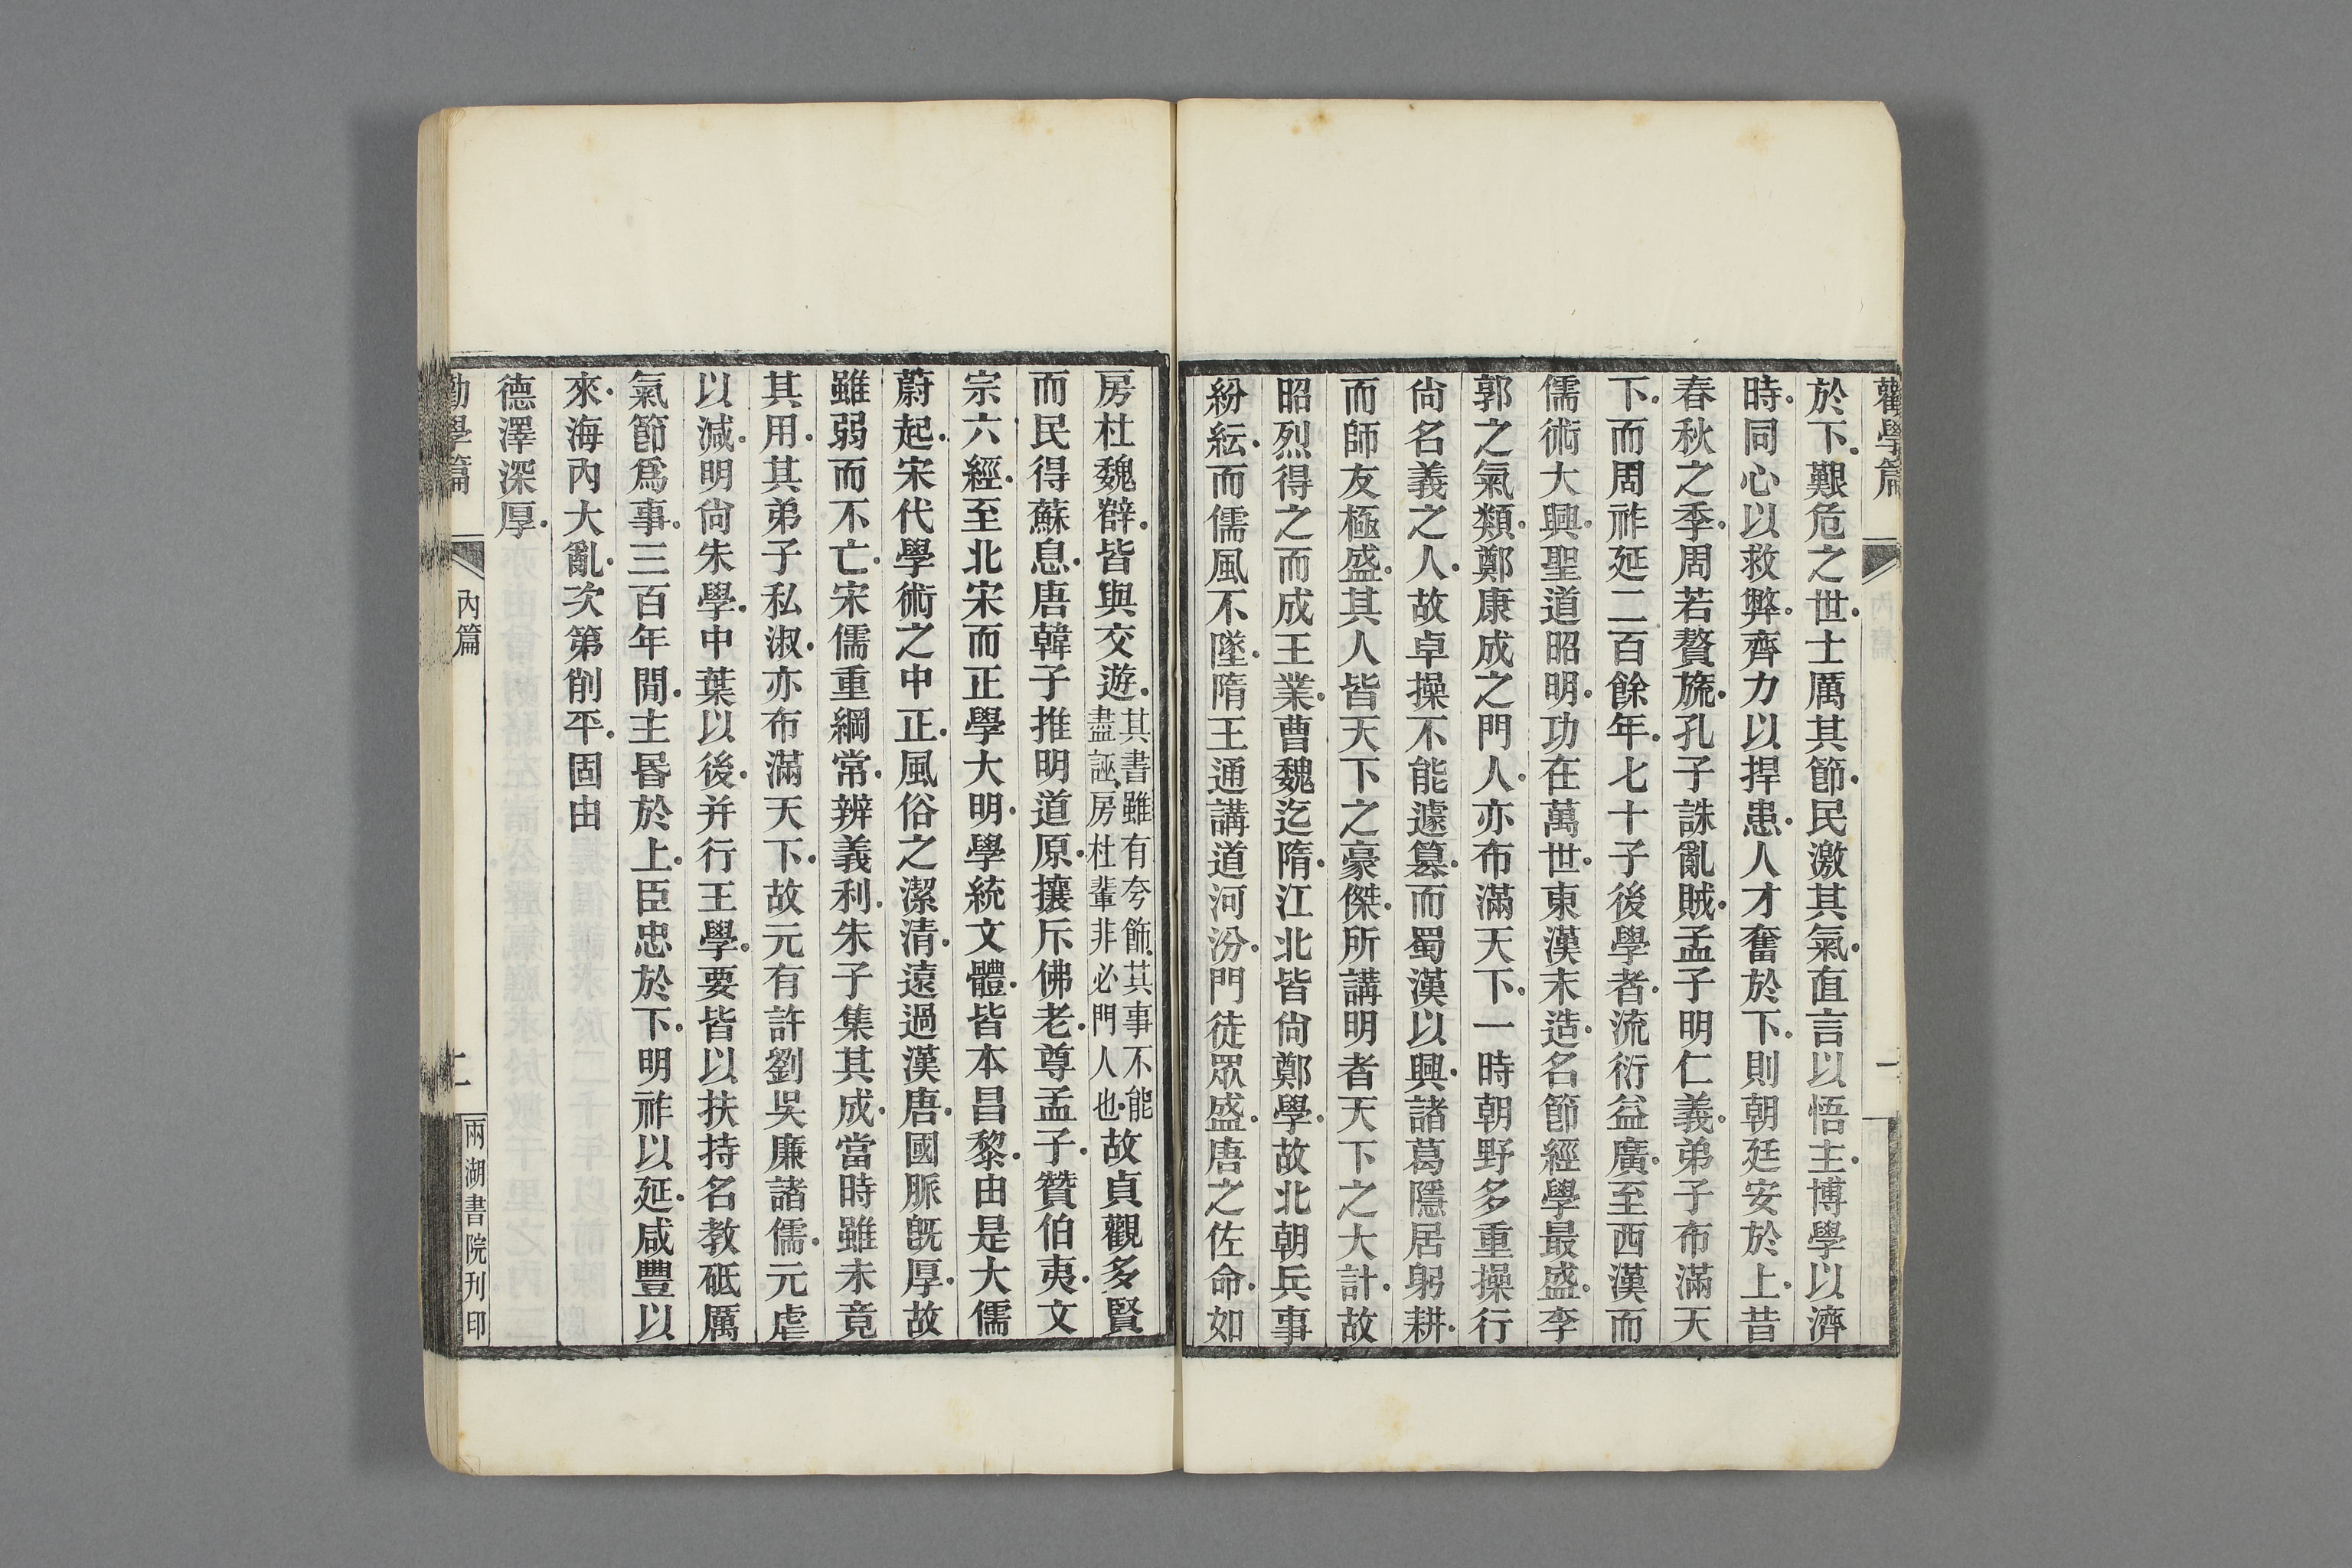 勸學篇
一
於下.艱危之世.士厲其節.民激其氣.直言以悟主.博學以濟
時.同心以救弊.齊力以捍患.人才奮於下.則朝廷安於上.昔
春秋之季.周若贅旒.孔子誅亂賊.孟子明仁義.弟子布滿天
下.而周祚延二百餘年.七十子後學者.流衍益廣.至西漢而
儒術大興.聖道昭明.功在萬世.東漢末造.名節經學最盛.李
郭之氣類.鄭康成之門人.亦布滿天下.一時朝野多重操行
尙名義之人.故卓操不能遽篡.而蜀漢以興.諸葛隱居躬耕.
而師友極盛.其人皆天下之豪傑.所講明者天下之大計.故
昭烈得之而成王業.曹魏迄隋.江北皆尙鄭學.故北朝兵事
紛紜.而儒風不墜.隋王通講道河汾.門徒眾盛.唐之佐命.如
房杜魏薛.皆與交遊.其書雖有夸飾.其事不能盡誣.房杜輩非必門人也.故貞觀多賢
而民得蘇息.唐韓子推明道原.攘斥佛老.尊孟子.贊伯夷.文
宗六經.至北宋而正學大明.學統文體.皆本昌黎.由是大儒
蔚起.宋代學術之中正.風俗之潔清.遠過漢唐.國脈旣厚.故
雖弱而不亡.宋儒重綱常.辨義利.朱子集其成.當時雖未竟
其用.其弟子私淑.亦布滿天下.故元有許劉吳廉諸儒.元虐
以減.明尙朱學.中葉以後.并行王學.要皆以扶持名教砥厲
氣節爲事.三百年閒.主昬於上.臣忠於下.明祚以延.咸豐以
來.海內大亂.次第削平.固由
德澤深厚.
勸學篇
內篇
二
兩湖書院刊印